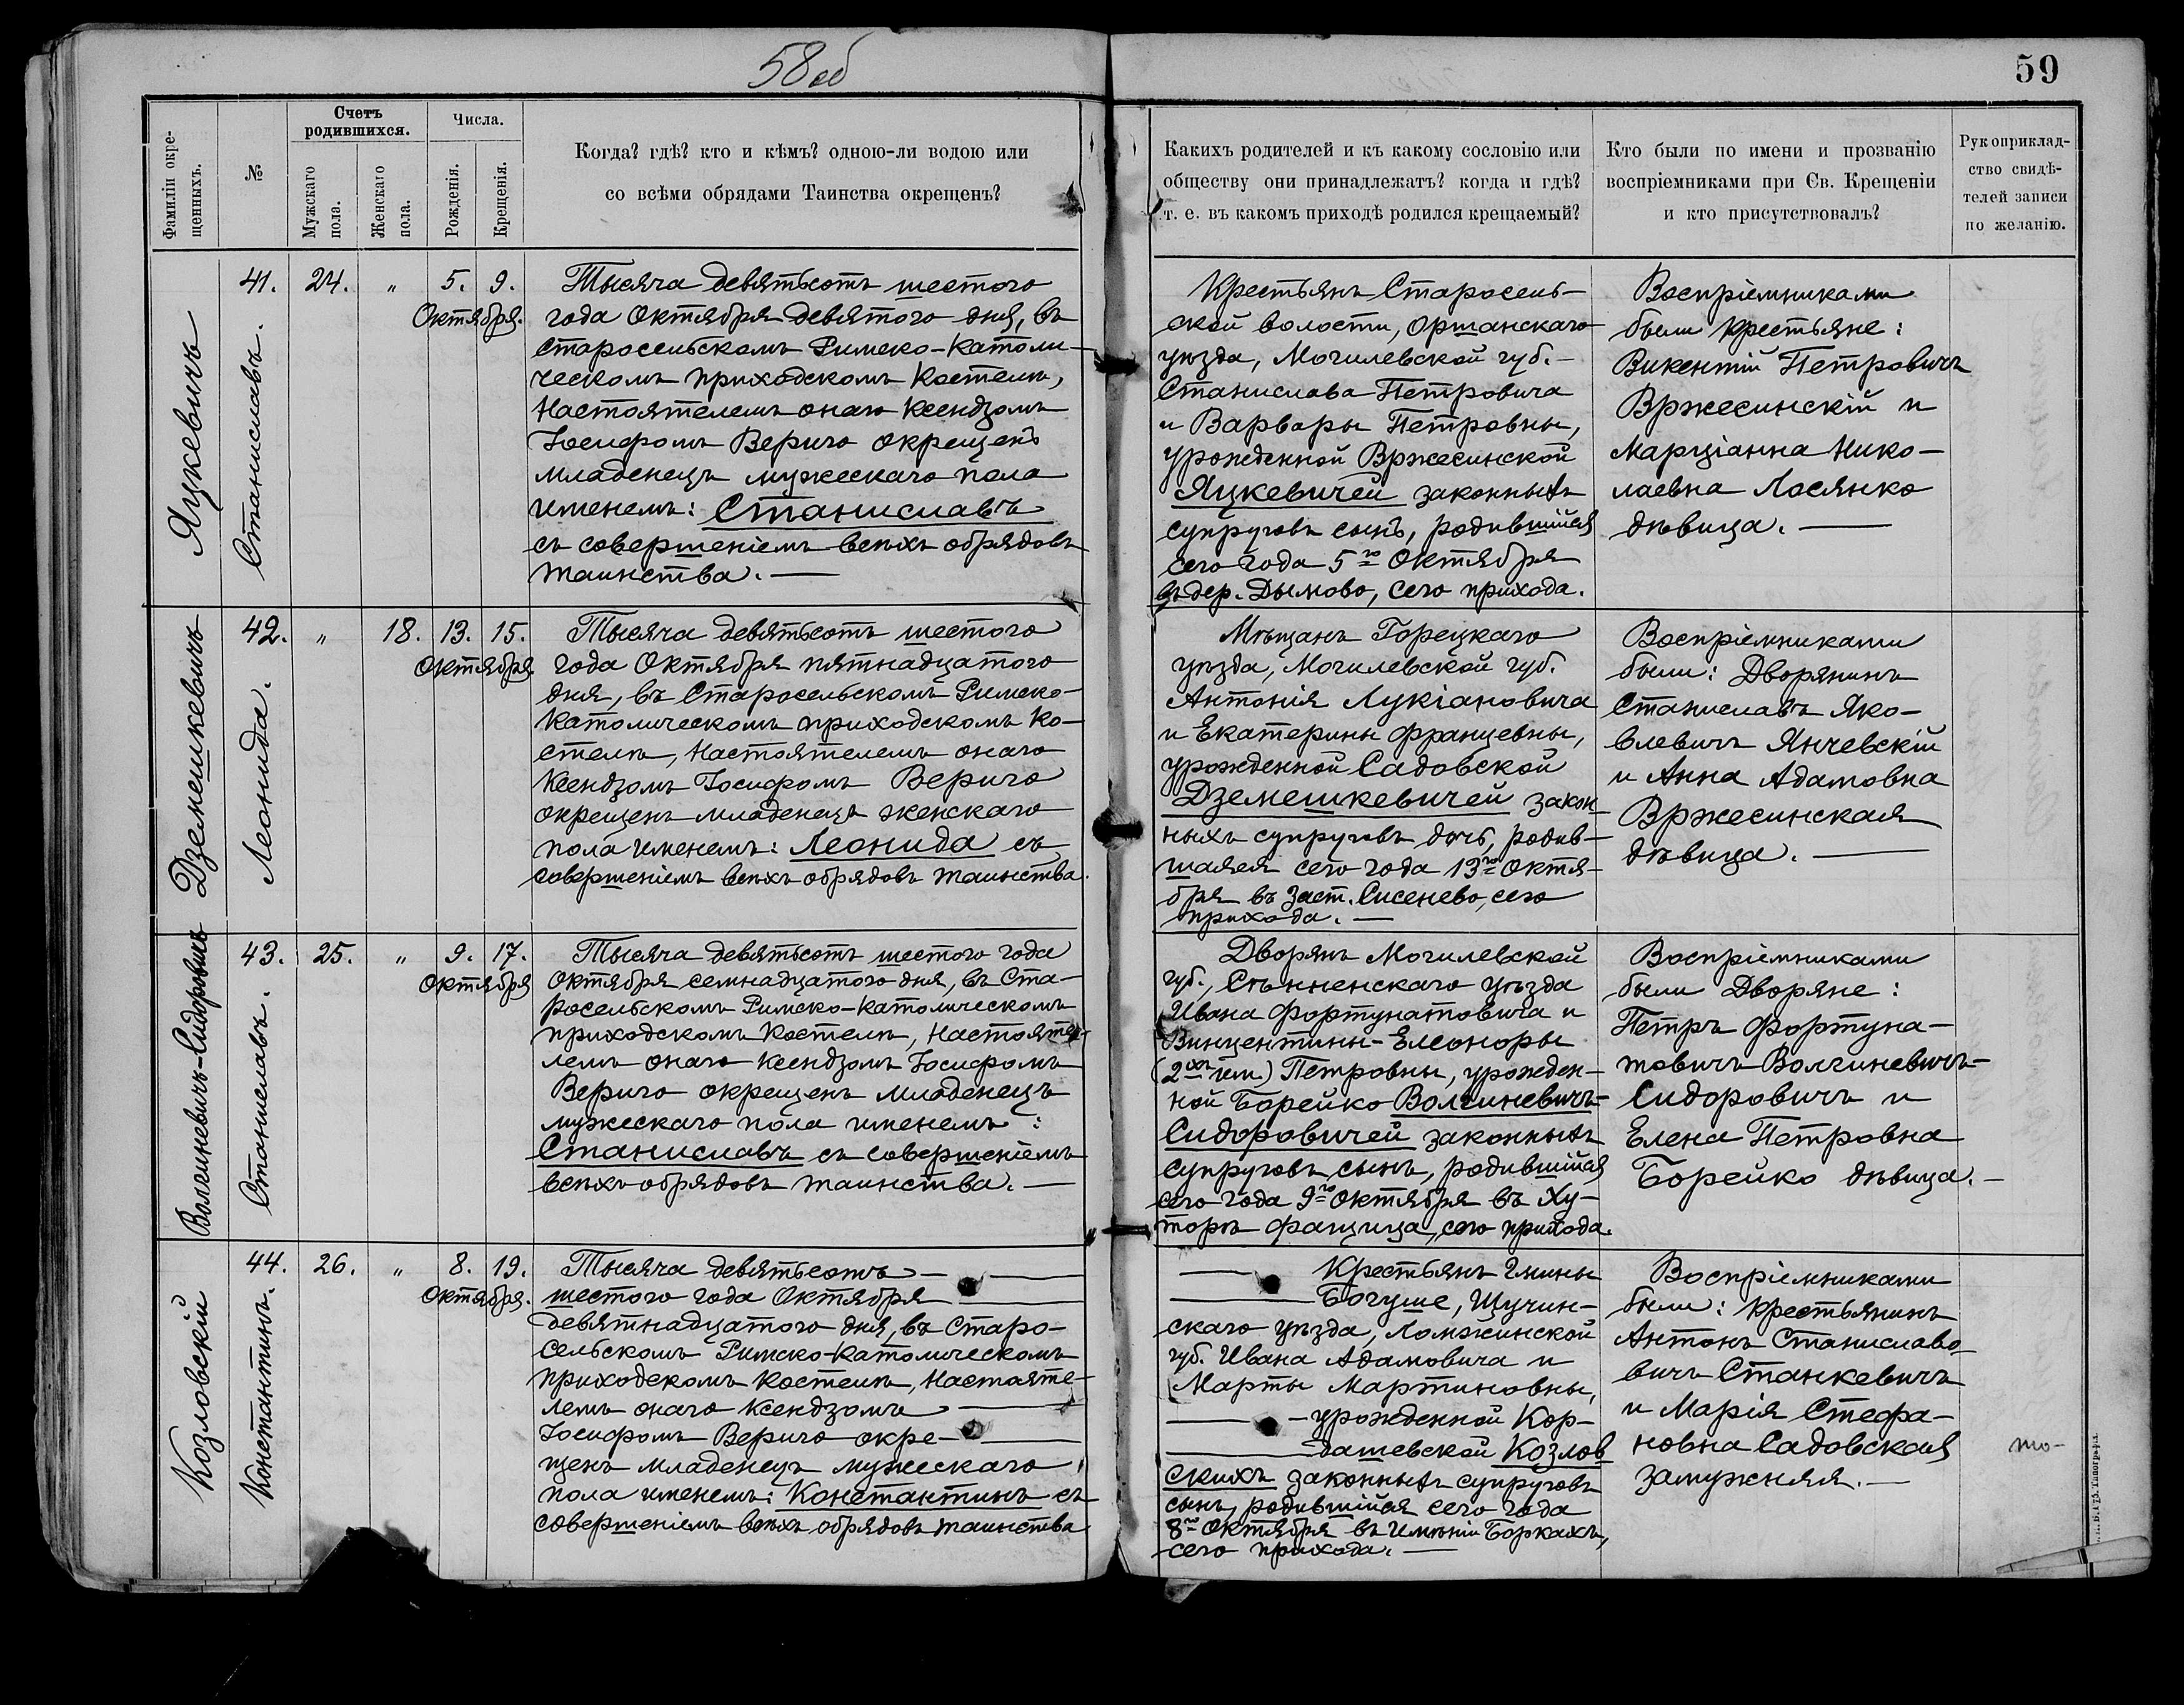 58 об
59
Фамиліи окре-
щенныхъ.
№
Счетъ
родившихся.
Мужскаго
пола.
Женскаго
пола.
Числа.
Рожденія.
Крещенія.
Когда? гдѣ? кто и кѣмъ? одною-ли водою или
со всѣми обрядами Таинства окрещенъ?
Какихъ родителей и къ какому сословію или
обществу они принадлежатъ? когда и гдѣ?
т. е. въ какомъ приходѣ родился крещаемый?
Кто были по имени и прозванію
воспріемниками при Св. Крещеніи
и кто присутствовалъ?
Рукоприклад-
ство свидѣ-
телей записи
по желанію.
Яцкевичъ
41.
Станиславъ.
24.
"
5. 9.
Октября.
Тысяча девятьсотъ шестого
года Октября девятого дня, въ
Старосельскомъ Римско-Католи-
ческомъ приходскомъ Костелѣ,
Настоятелемъ онаго Ксендзомъ
Іосифомъ Верыго окрещенъ
младенецъ мужескаго пола
именемъ: Станиславъ
съ совершеніемъ всѣхъ обрядовъ
таинства. —
Крестьянъ Старосель-
ской волости, Оршанскаго
уѣзда, Могилевской губ. –
Станислава Петровича
и Варвары Петровны,
урожденной Вржесинской
Яцкевичей законныхъ
супруговъ сынъ, родившійся
сего года 5го Октября
въ дер. Дымово, сего прихода.
Воспріемниками
были Крестьяне:
Викентій Петровичъ
Вржесинскій и
Марціанна Нико-
лаевна Лосянко
дѣвица. —
Дземешкевичъ
42.
Леонида.
"
18.
13. 15.
Октября.
Тысяча девятьсотъ шестого
года Октября пятнадцатого
дня, въ Старосельскомъ Римско-
Католическомъ приходскомъ Ко-
стелѣ, Настоятелемъ онаго
Ксендзомъ Іосифомъ Верыго
окрещенъ младенецъ женскаго
пола именемъ: Леонида съ
совершеніемъ всѣхъ обрядовъ таинства.
Мѣщанъ Горецкаго
уѣзда, Могилевской губ.
Антонія Лукіановича
и Екатерины Францевны,
урожденной Садовской
Дземешкевичей закон
ныхъ супруговъ дочь, родив-
шаяся сего года 13го Октя-
бря въ заст. Сисенево, сего
прихода. —
Воспріемниками
были: Дворянинъ
Станиславъ Яко-
влевичъ Янчевскій
и Анна Адамовна
Вржесинская
дѣвица. —
Волчиневичъ-Сидоровичъ
43.
Станиславъ.
25.
"
9. 17.
Октября
Тысяча девятьсотъ шестого года
Октября семнадцатого дня, въ Ста-
росельскомъ Римско-Католическомъ
приходскомъ Костелѣ, Настояте-
лемъ онаго Ксендзомъ Іосифомъ
Верыго окрещенъ младенецъ
мужескаго пола именемъ:
Станиславъ съ совершеніемъ
всѣхъ обрядовъ таинства. —
Дворянъ Могилевской
губ., Сѣнненскаго уѣзда
Ивана Фортунатовича и
Винцентины-Елеоноры
(2хъ им.) Петровны, урожден-
ной Борейко Волчиневичъ-
Сидоровичей законныхъ
супруговъ сынъ, родившійся
сего года 9го Октября въ Ху-
торѣ Фащица, сего прихода.
Воспріемниками
были Дворяне:
Петръ Фортуна-
товичъ Волчиневичъ-
Сидоровичъ и
Елена Петровна
Борейко дѣвица. —
Козловскій
44.
Константинъ.
26.
"
8. 19.
Октября.
Тысяча девятьсотъ —
шестого года Октября —
девятнадцатого дня, въ Старо-
сельскомъ Римско-Католическомъ
приходскомъ Костелѣ, Настояте-
лемъ онаго Ксендзомъ —
Іосифомъ Верыго окре-
щенъ младенецъ мужескаго
пола именемъ: Константинъ съ
совершеніемъ всѣхъ обрядовъ таинства
— Крестьянъ Гмины
— Богуше, Щучин-
скаго уѣзда, Ломжинской
губ. Ивана Адамовича и
Марты Мартиновны,
— урожденной Кор-
— дашевской Козлов
скихъ законныхъ супруговъ
сынъ, родившійся сего года
8го Октября въ Имѣніи Боркахъ,
сего прихода. —
Воспріемниками
были: Крестьянинъ
Антонъ Станиславо
вичъ Станкевичъ
и Марія Стефа-
новна Садовская
замужняя. —
то-